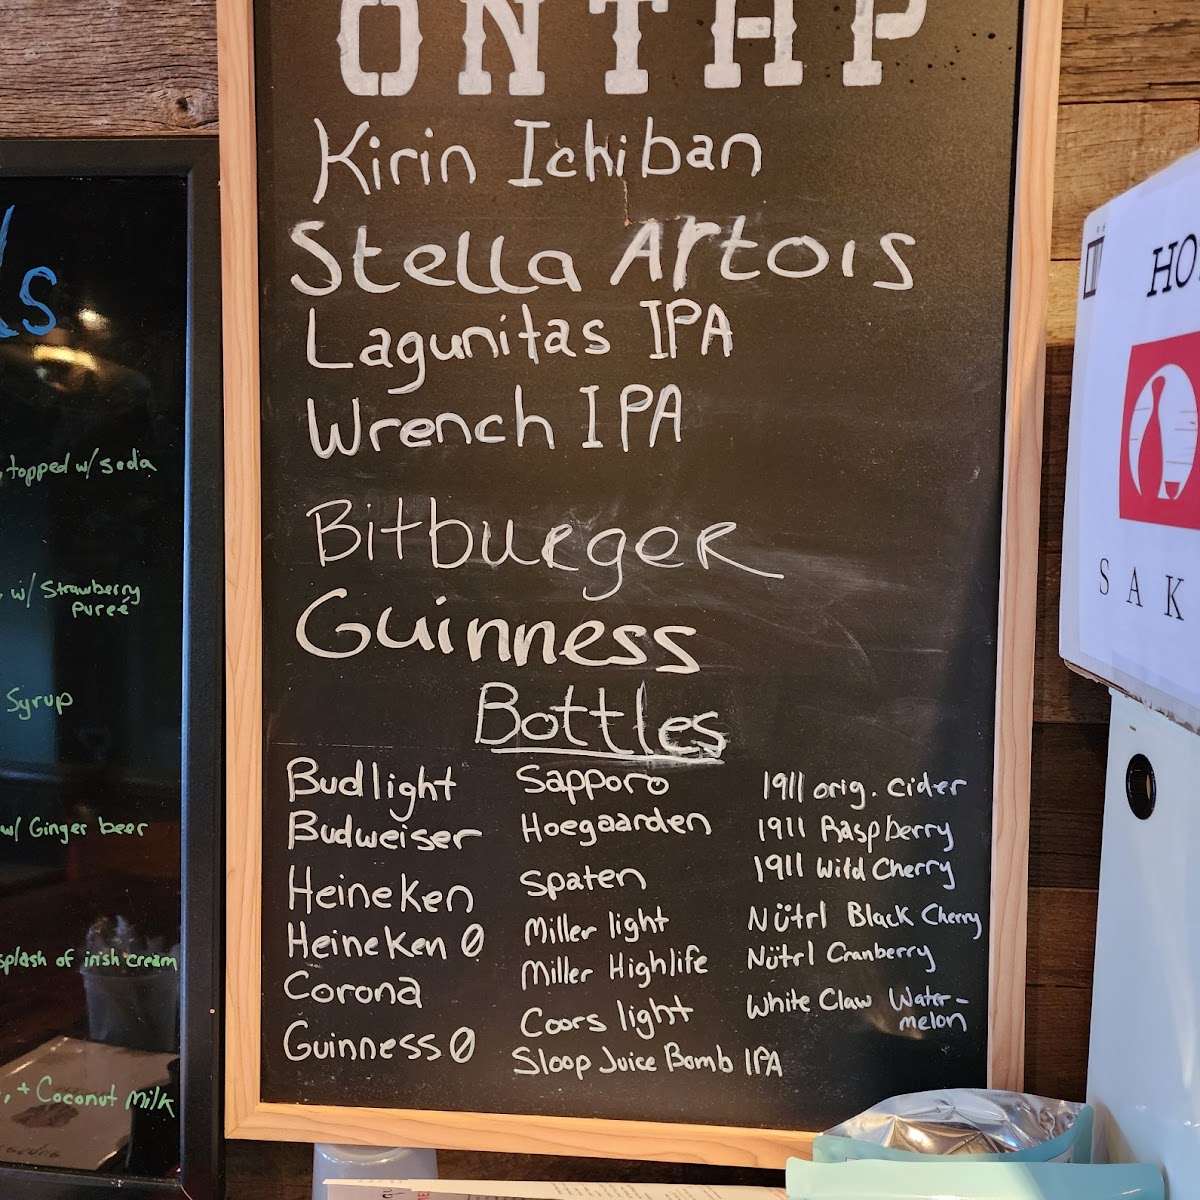 ONTAP
Kirin Ichiban
Stella Artois
Lagunitas IPA
Wrench IPA
Bitburger
Guinness
Bottles
Budlight
Budweiser
Heineken
Heineken 0
Corona
Guinness 0
Sapporo
Hoegaarden
Spaten
Miller light
Miller Highlife
Coors light
Sloop Juice Bomb IPA
1911 orig. cider
1911 Raspberry
1911 Wild Cherry
Nütrl Black Cherry
Nütrl Cranberry
White Claw Water-
melon
topped w/ soda
w/ Strawberry
pureé
Syrup
w/ Ginger beer
splash of irish cream
+ Coconut Milk
HO
SAK